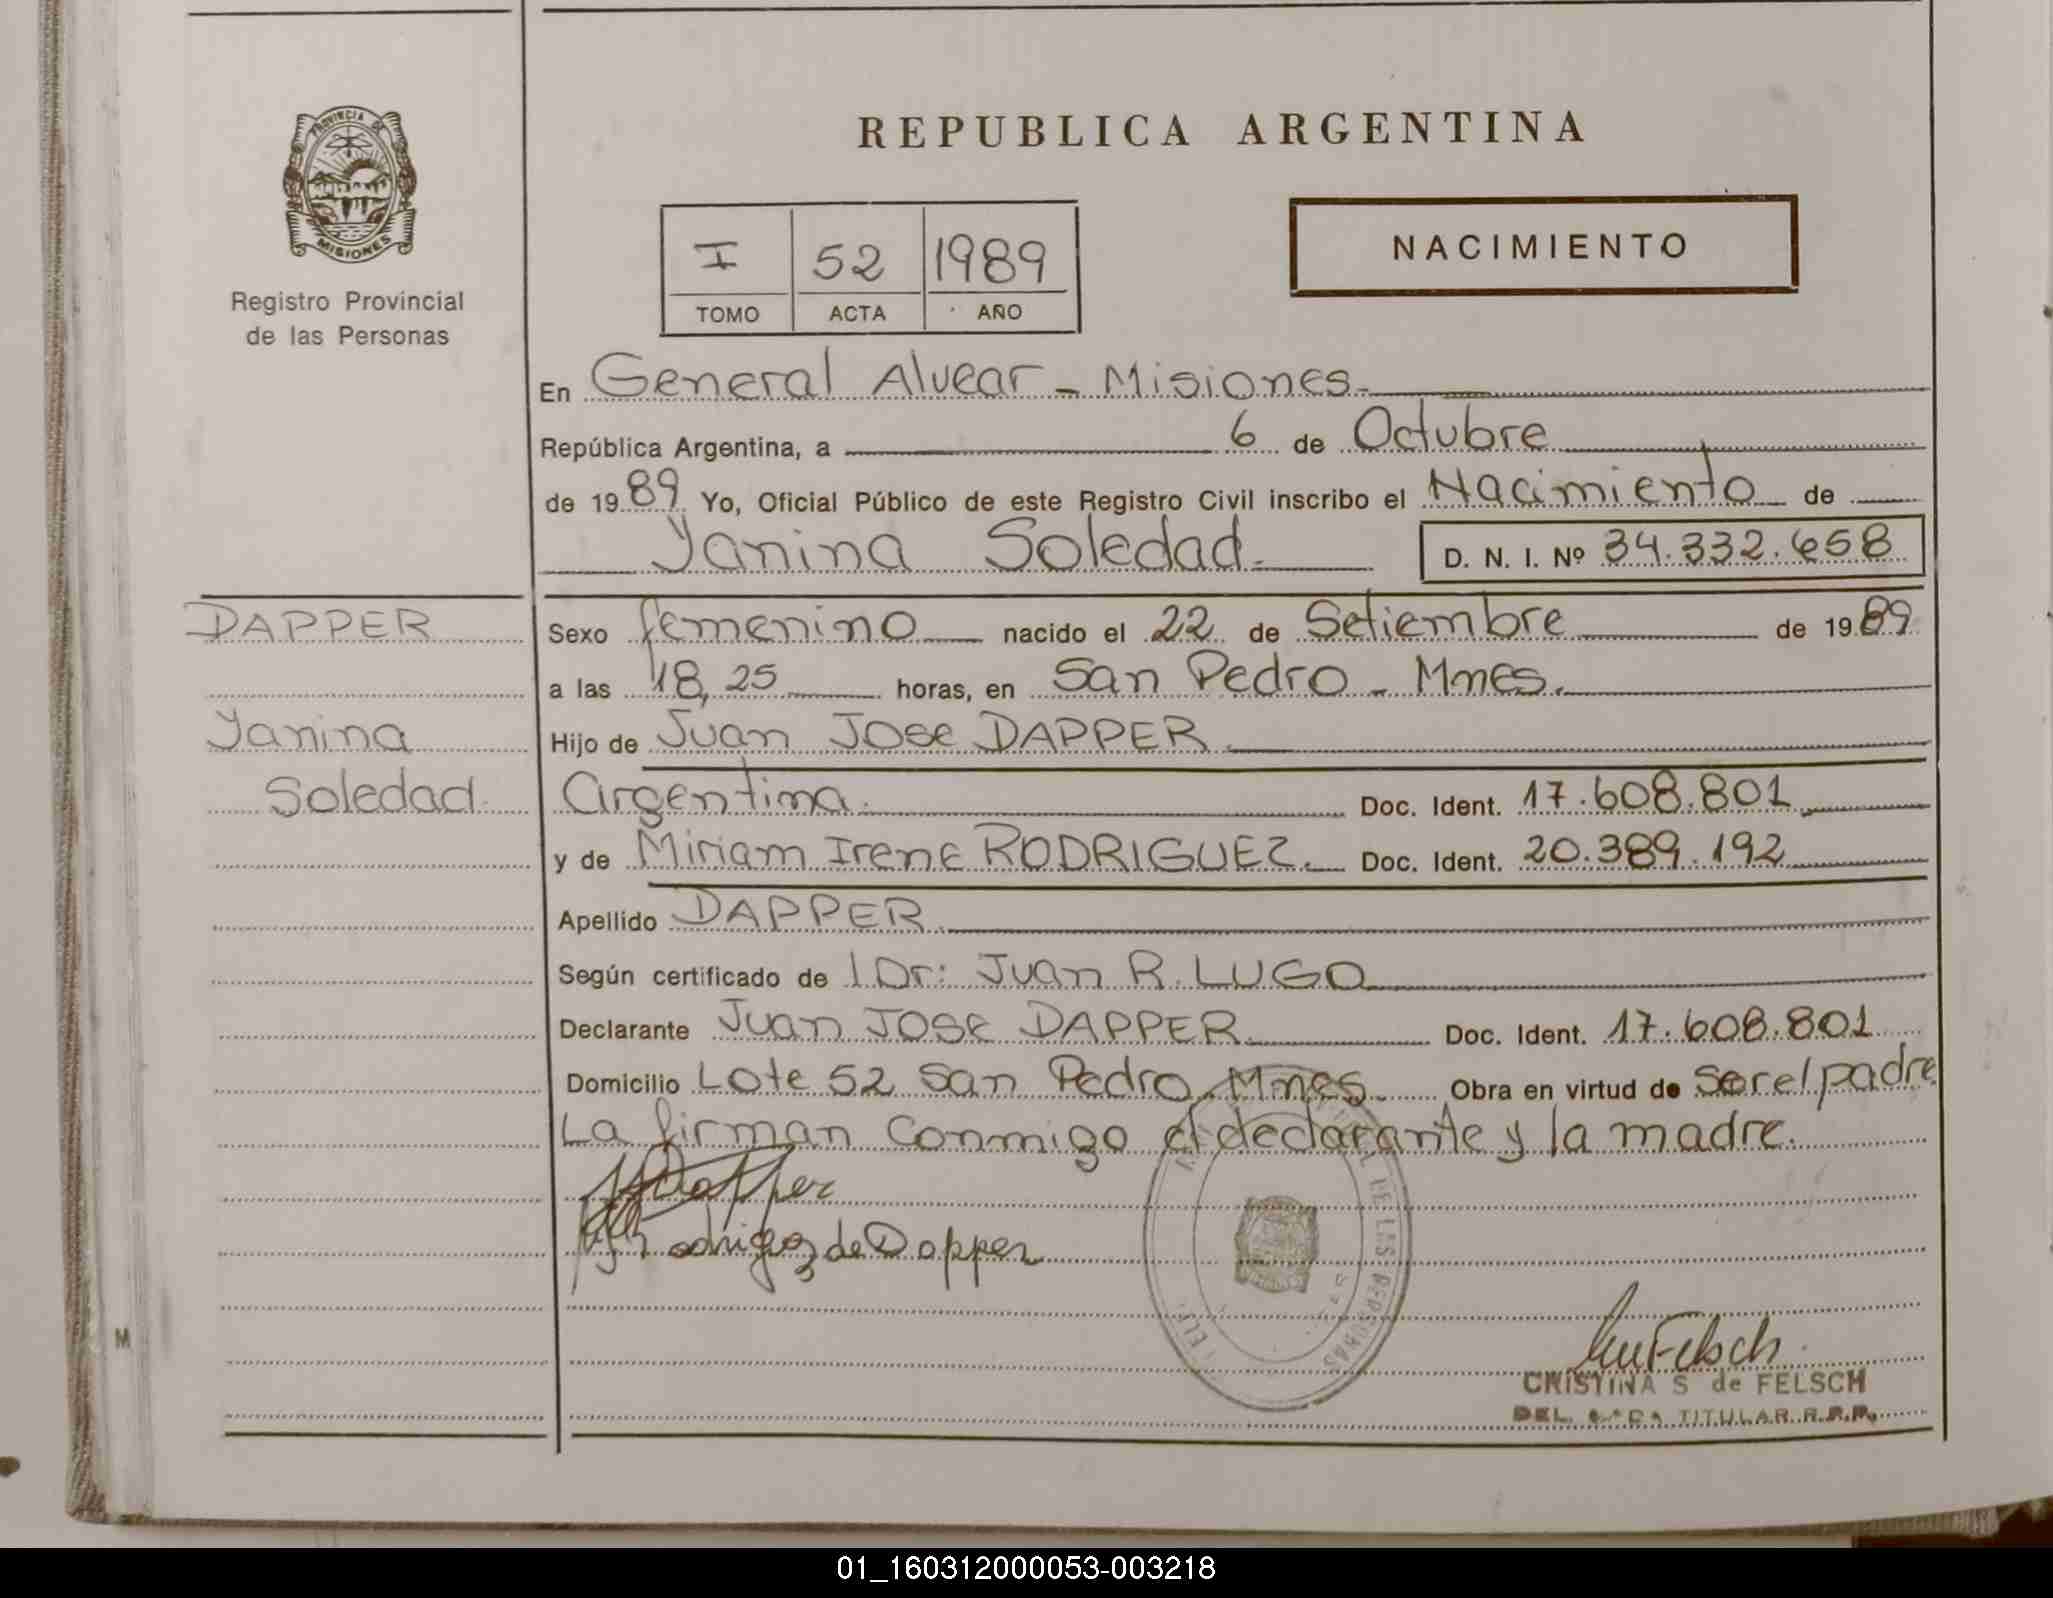 PROVINCIA DE
MISIONES
Registro Provincial
de las Personas
REPUBLICA ARGENTINA
I 52 1989
TOMO ACTA AÑO
NACIMIENTO
En General Alvear - Misiones.
República Argentina, a 6 de Octubre
de 1989 Yo, Oficial Público de este Registro Civil inscribo el Nacimiento de
Yanina Soledad. D. N. I. Nº 34.332.658
DAPPER
Yanina
Soledad.
Sexo femenino nacido el 22 de Setiembre de 1989
a las 18,25 horas, en San Pedro - Mnes.
Hijo de Juan JOSE DAPPER
argentina. Doc. Ident. 17.608.801
y de Miriam Irene RODRIGUEZ. Doc. Ident. 20.389.192
Apellido DAPPER.
Según certificado de l Dr: Juan R. LUGO
Declarante Juan JOSE DAPPER Doc. Ident. 17.608.801
Domicilio Lote 52 San Pedro Mnes. Obra en virtud de ser el padre
La firman conmigo el declarante y la madre.
Dapper
Rodriguez de Dapper
DE LAS PERSONAS
Felsch
CRISTINA S de FELSCH
DEL. TITULAR R.P.P.
M
01_160312000053-003218